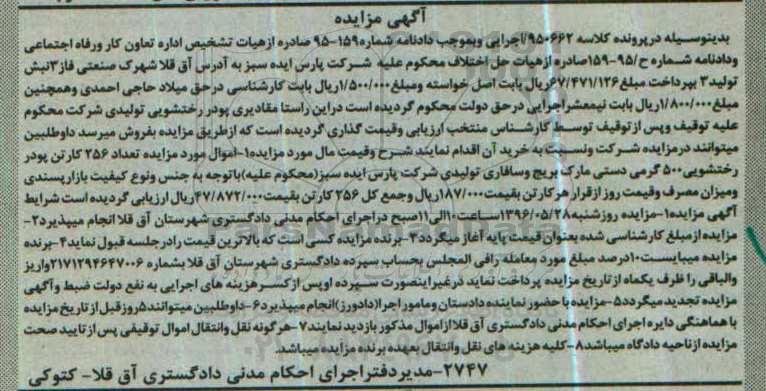 آگهی مزایده
بدینوسیله درپرونده کلاسه ۹۵۰۶۶۲/اجرایی وبموجب دادنامه شماره۱۵۹-۹۵ صادره ازهیات تشخیص اداره تعاون کار ورفاه اجتماعی
ودادنامه شماره ح/۹۵-۱۵۹صادره ازهیات حل اختلاف محکوم علیه شرکت پارس ایده سبز به آدرس آق قلا شهرک صنعتی فاز۳نبش
تولید۳ بپرداخت مبلغ۶۷/۴۷۱/۱۲۶ریال بابت اصل خواسته ومبلغ۱/۵۰۰/۰۰۰ریال بابت کارشناسی درحق میلاد حاجی احمدی وهمچنین
مبلغ۱/۸۰۰/۰۰۰ریال بابت نیمعشراجرایی درحق دولت محکوم گردیده است دراین راستا مقادیری پودررختشویی تولیدی شرکت محکوم
علیه توقیف وپس ازتوقیف توسط کارشناس منتخب ارزیابی وقیمت گذاری گردیده است که ازطریق مزایده بفروش میرسد داوطلبین
میتوانند درمزایده شرکت ونسبت به خرید آن اقدام نمایند شرح وقیمت مال مورد مزایده۱-اموال مورد مزایده تعداد ۲۵۶ کارتن پودر
رختشویی۵۰۰ گرمی دستی مارک بریچ وسافاری تولیدی شرکت پارس ایده سبز(محکوم علیه)باتوجه به جنس ونوع کیفیت بازارپسندی
ومیزان مصرف وقیمت روز ازقرار هرکارتن بقیمت۱۸۷/۰۰۰ریال وجمع کل ۲۵۶ کارتن بقیمت۴۷/۸۷۲/۰۰۰ریال ارزیابی گردیده است شرایط
آگهی مزایده۱-مزایده روزشنبه۱۳۹۶/۰۵/۲۸ساعت۱۰الی۱۱صبح دراجرای احکام مدنی دادگستری شهرستان آق قلا انجام میپذیرد۲-
مزایده ازمبلغ کارشناسی شده بعنوان قیمت پایه آغاز میگردد۳-برنده مزایده کسی است که بالاترین قیمت رادرجلسه قبول نماید۴-برنده
مزایده میبایست۱۰درصد مبلغ مورد معامله رافی المجلس بحساب سپرده دادگستری شهرستان آق قلا بشماره ۲۱۷۱۲۹۴۶۴۷۰۰۶واریز
والباقی را ظرف یکماه ازتاریخ مزایده پرداخت نماید درغیراینصورت سپرده اوپس ازکسرهزینه های اجرایی به نفع دولت ضبط وآگهی
مزایده تجدید میگردد۵-مزایده با حضور نماینده دادستان ومامور اجرا(دادورز)انجام میپذیرد۶-داوطلبین میتوانند۵روزقبل ازتاریخ مزایده
با هماهنگی دایره اجرای احکام مدنی دادگستری آق قلا ازاموال مذکور بازدید نمایند۷-هرگونه نقل وانتقال اموال توقیفی پس ازتایید صحت
مزایده ازناحیه دادگاه میباشد۸-کلیه هزینه های نقل وانتقال بعهده برنده مزایده میباشد.
۲۷۴۷-مدیردفتراجرای احکام مدنی دادگستری آق قلا- کتوکی